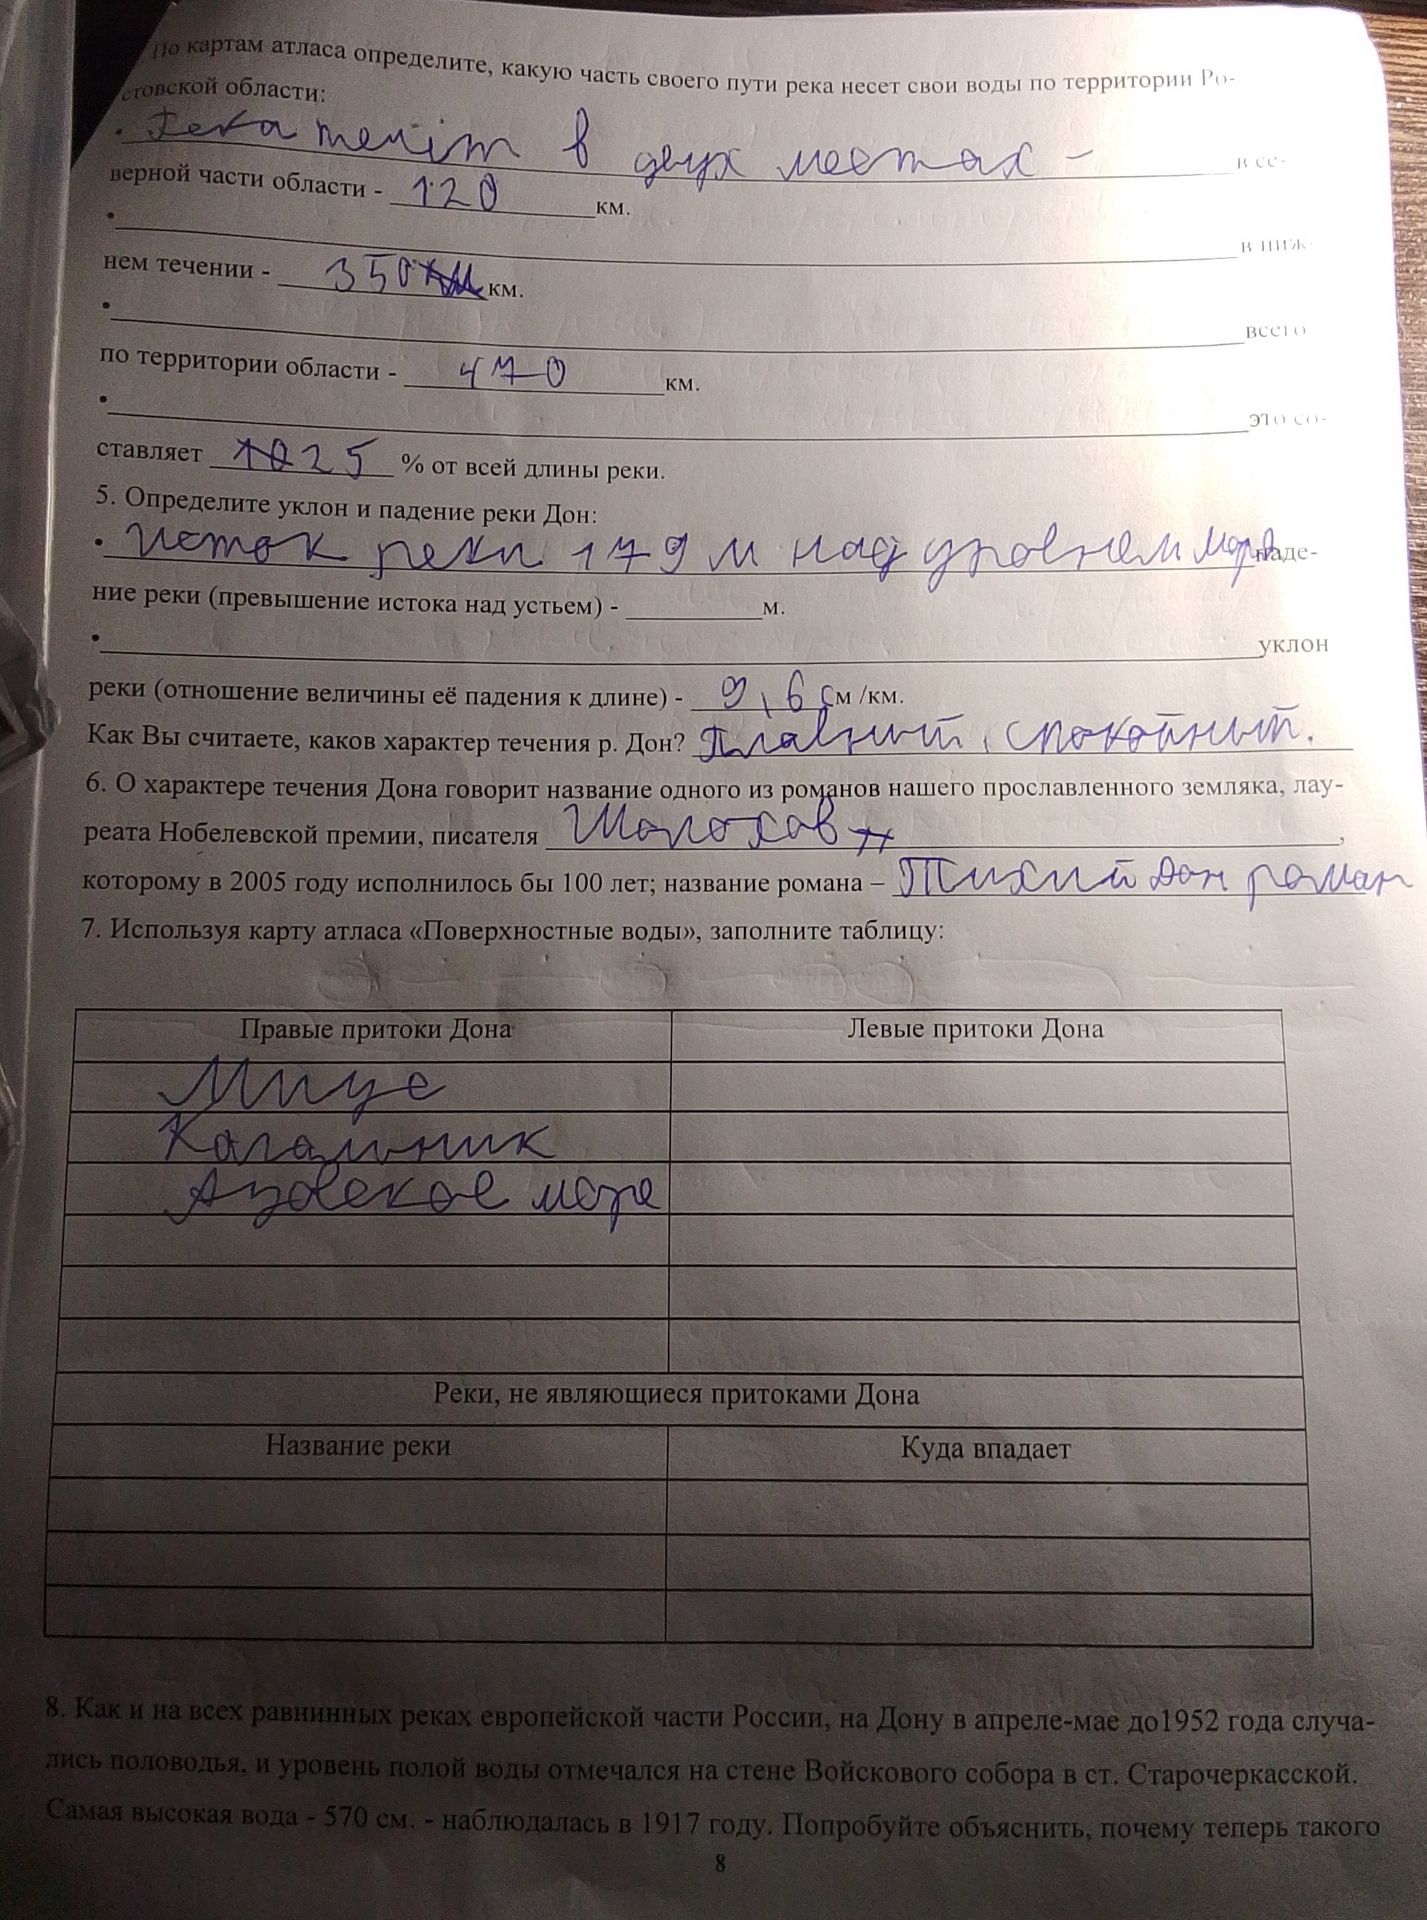 По картам атласа определите, какую часть своего пути река несет свои воды по территории Ро-
стовской области:
• Река течёт в двух местах - в се-
верной части области - 120 км.
• в ниж-
нем течении - 350 км.
• всего
по территории области - 470 км.
• это со-
ставляет 25 % от всей длины реки.
5. Определите уклон и падение реки Дон:
• Исток реки 179 м над уровнем моря паде-
ние реки (превышение истока над устьем) - м.
• уклон
реки (отношение величины её падения к длине) - 9,6 см /км.
Как Вы считаете, каков характер течения р. Дон? Плавный, спокойный.
6. О характере течения Дона говорит название одного из романов нашего прославленного земляка, лау-
реата Нобелевской премии, писателя Шолохов,
которому в 2005 году исполнилось бы 100 лет; название романа – Тихий Дон роман
7. Используя карту атласа «Поверхностные воды», заполните таблицу:
Правые притоки Дона Левые притоки Дона
Миус
Кагальник
Азовское море
Реки, не являющиеся притоками Дона
Название реки Куда впадает
8. Как и на всех равнинных реках европейской части России, на Дону в апреле-мае до1952 года случа-
лись половодья, и уровень полой воды отмечался на стене Войскового собора в ст. Старочеркасской.
Самая высокая вода - 570 см. - наблюдалась в 1917 году. Попробуйте объяснить, почему теперь такого
8